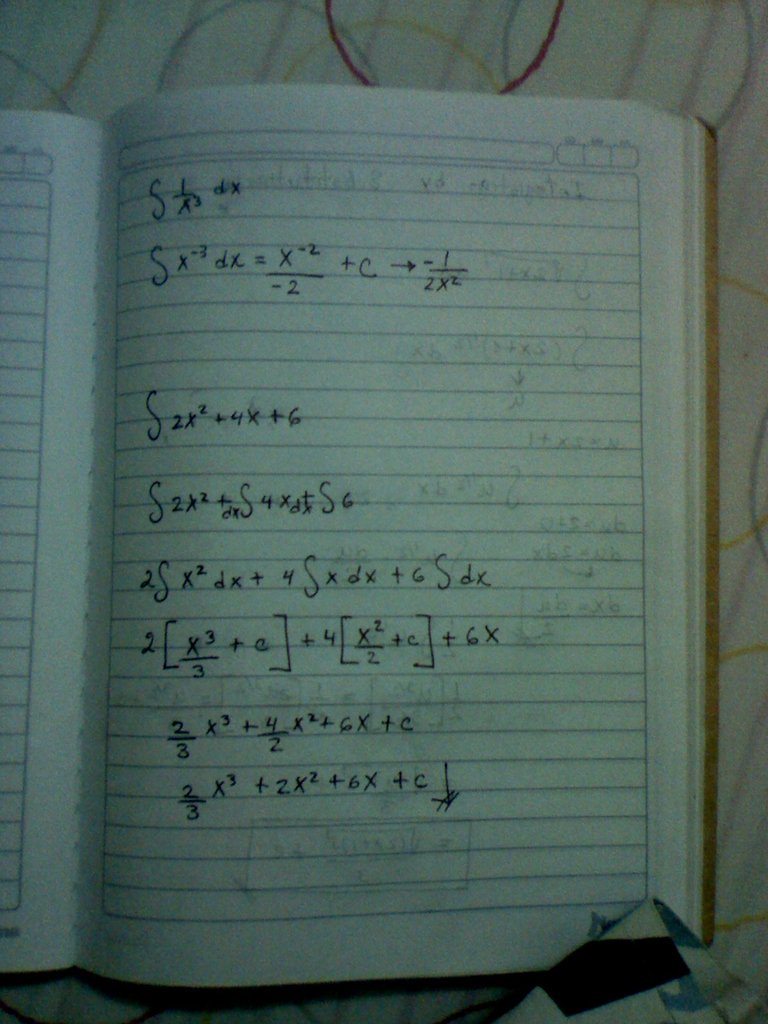 ∫ 1/x³ dx
∫ x⁻³ dx = x⁻²/-2 + c → -1/2x²
∫ 2x² + 4x + 6
∫ 2x² dx + ∫ 4x dx + ∫ 6
2∫ x² dx + 4∫ x dx + 6∫ dx
2[x³/3 + c] + 4[x²/2 + c] + 6x
2/3 x³ + 4/2 x² + 6x + c
2/3 x³ + 2x² + 6x + c